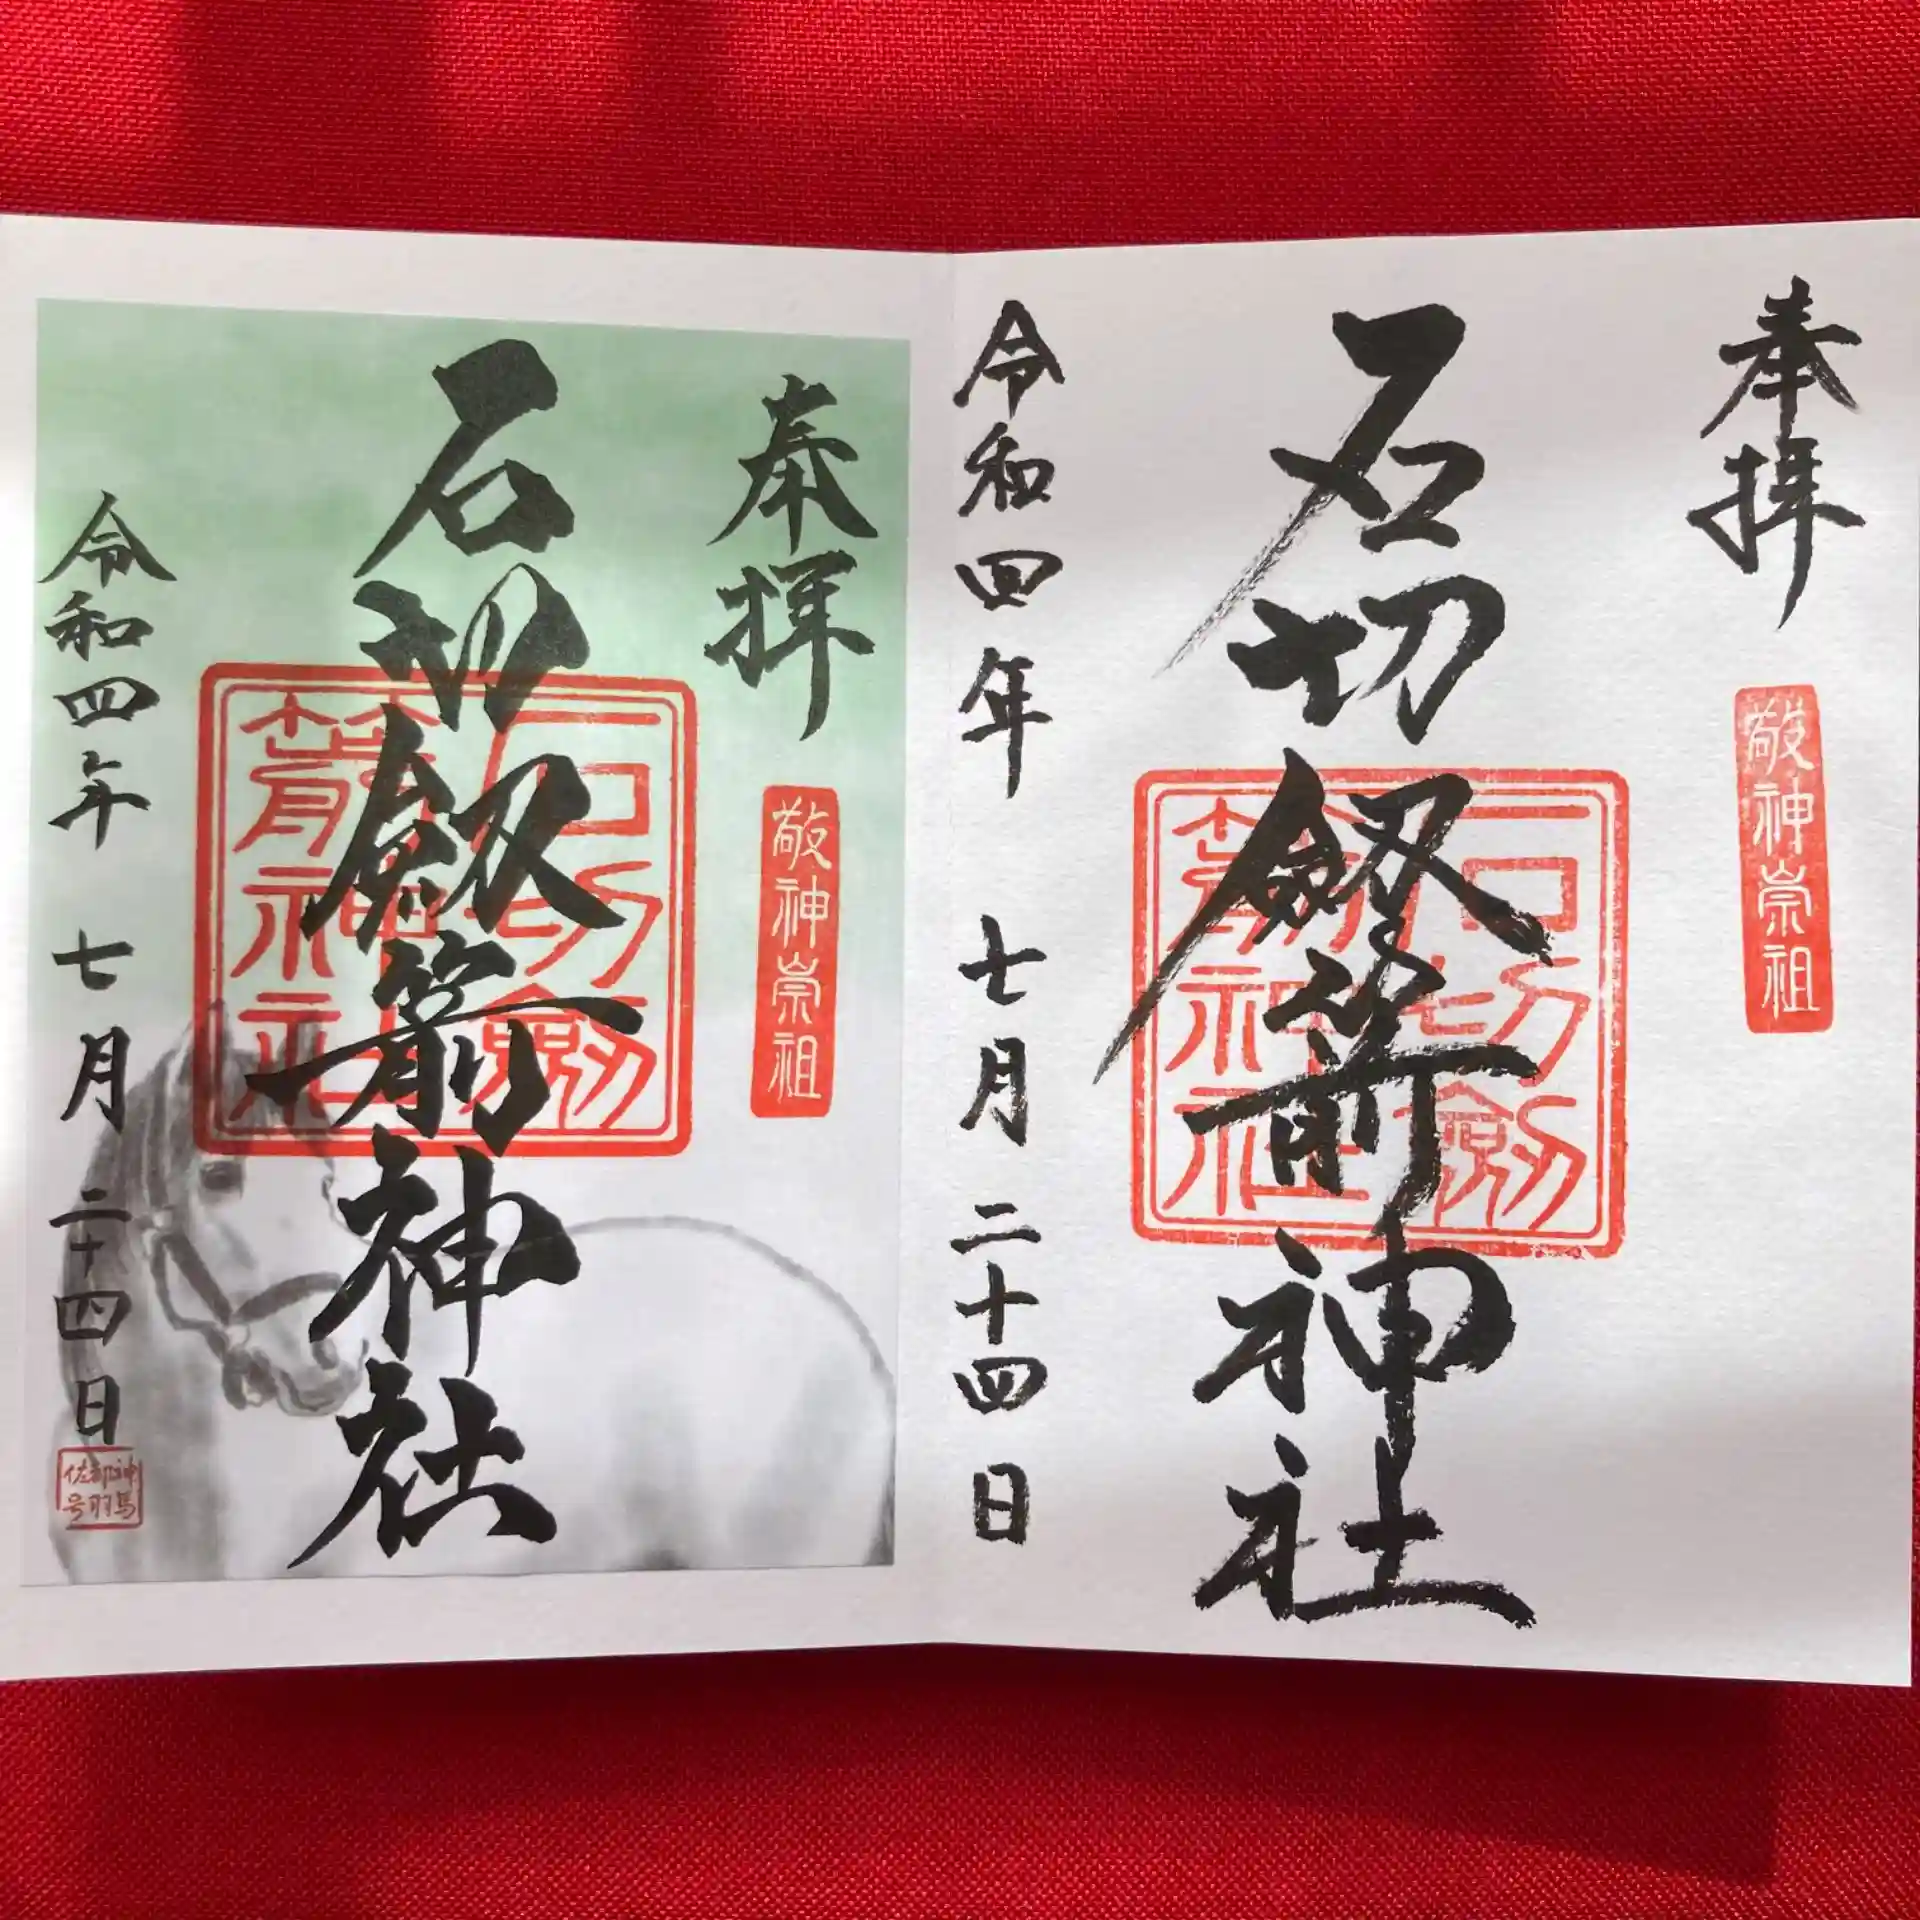 奉拝
敬神崇祖
石切劔箭神社
石切劔
箭神社
令和四年 七月 二十四日
奉拝
敬神崇祖
石切劔箭神社
石切劔
箭神社
令和四年 七月 二十四日
神馬
都羽
佐号